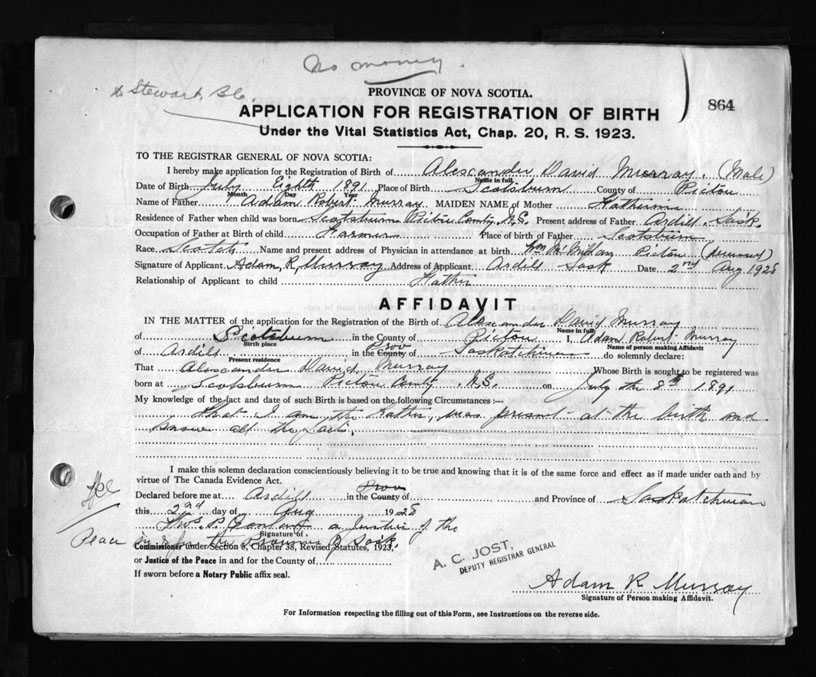 No money.
to Stewart, B.C.
PROVINCE OF NOVA SCOTIA.
864
APPLICATION FOR REGISTRATION OF BIRTH
Under the Vital Statistics Act, Chap. 20, R. S. 1923.
TO THE REGISTRAR GENERAL OF NOVA SCOTIA:
I hereby make application for the Registration of Birth of Alexander David Murray. (Male)
Name in full
Date of Birth July Eighth 1891 Place of Birth Scotsburn County of Pictou
Month Day Year
Name of Father Adam Robert Murray MAIDEN NAME of Mother
Residence of Father when child was born Scotsburn Pictou County N.S. Present address of Father Ardill Sask.
Occupation of Father at Birth of child Farmer Place of birth of Father Scotsburn
Race Scotch Name and present address of Physician in attendance at birth Wm McMillan Pictou (deceased)
Signature of Applicant Adam, R, Murray Address of Applicant Ardill Sask Date 2nd Aug 1928
Relationship of Applicant to child Father
AFFIDAVIT
IN THE MATTER of the application for the Registration of the Birth of Alexander David Murray
Name in full
of Scotsburn in the County of Pictou I, Adam Robert Murray
Birth place Name of person making Affidavit
of Ardill in the County of Prov Saskatchewan do solemnly declare:
Present residence
That Alexander David Murray Whose Birth is sought to be registered was
born at Scotsburn Pictou County N.S. on July the 8th 1891
My knowledge of the fact and date of such Birth is based on the following Circumstances:—
that I am the Father, was present at the birth and
know all the facts.
I make this solemn declaration conscientiously believing it to be true and knowing that it is of the same force and effect as if made under oath and by
virtue of The Canada Evidence Act.
Declared before me at Ardill in the County of Prov and Province of Saskatchewan
this 2nd day of Aug 1928
Thos. P. a Justice of the
Signature of
Peace in & for the Province of Sask.
Commissioner under Section 6, Chapter 38, Revised Statutes, 1923.
or Justice of the Peace in and for the County of
If sworn before a Notary Public affix seal.
A. C. JOST,
DEPUTY REGISTRAR GENERAL
Adam R Murray
Signature of Person making Affidavit.
For Information respecting the filling out of this Form, see Instructions on the reverse side.